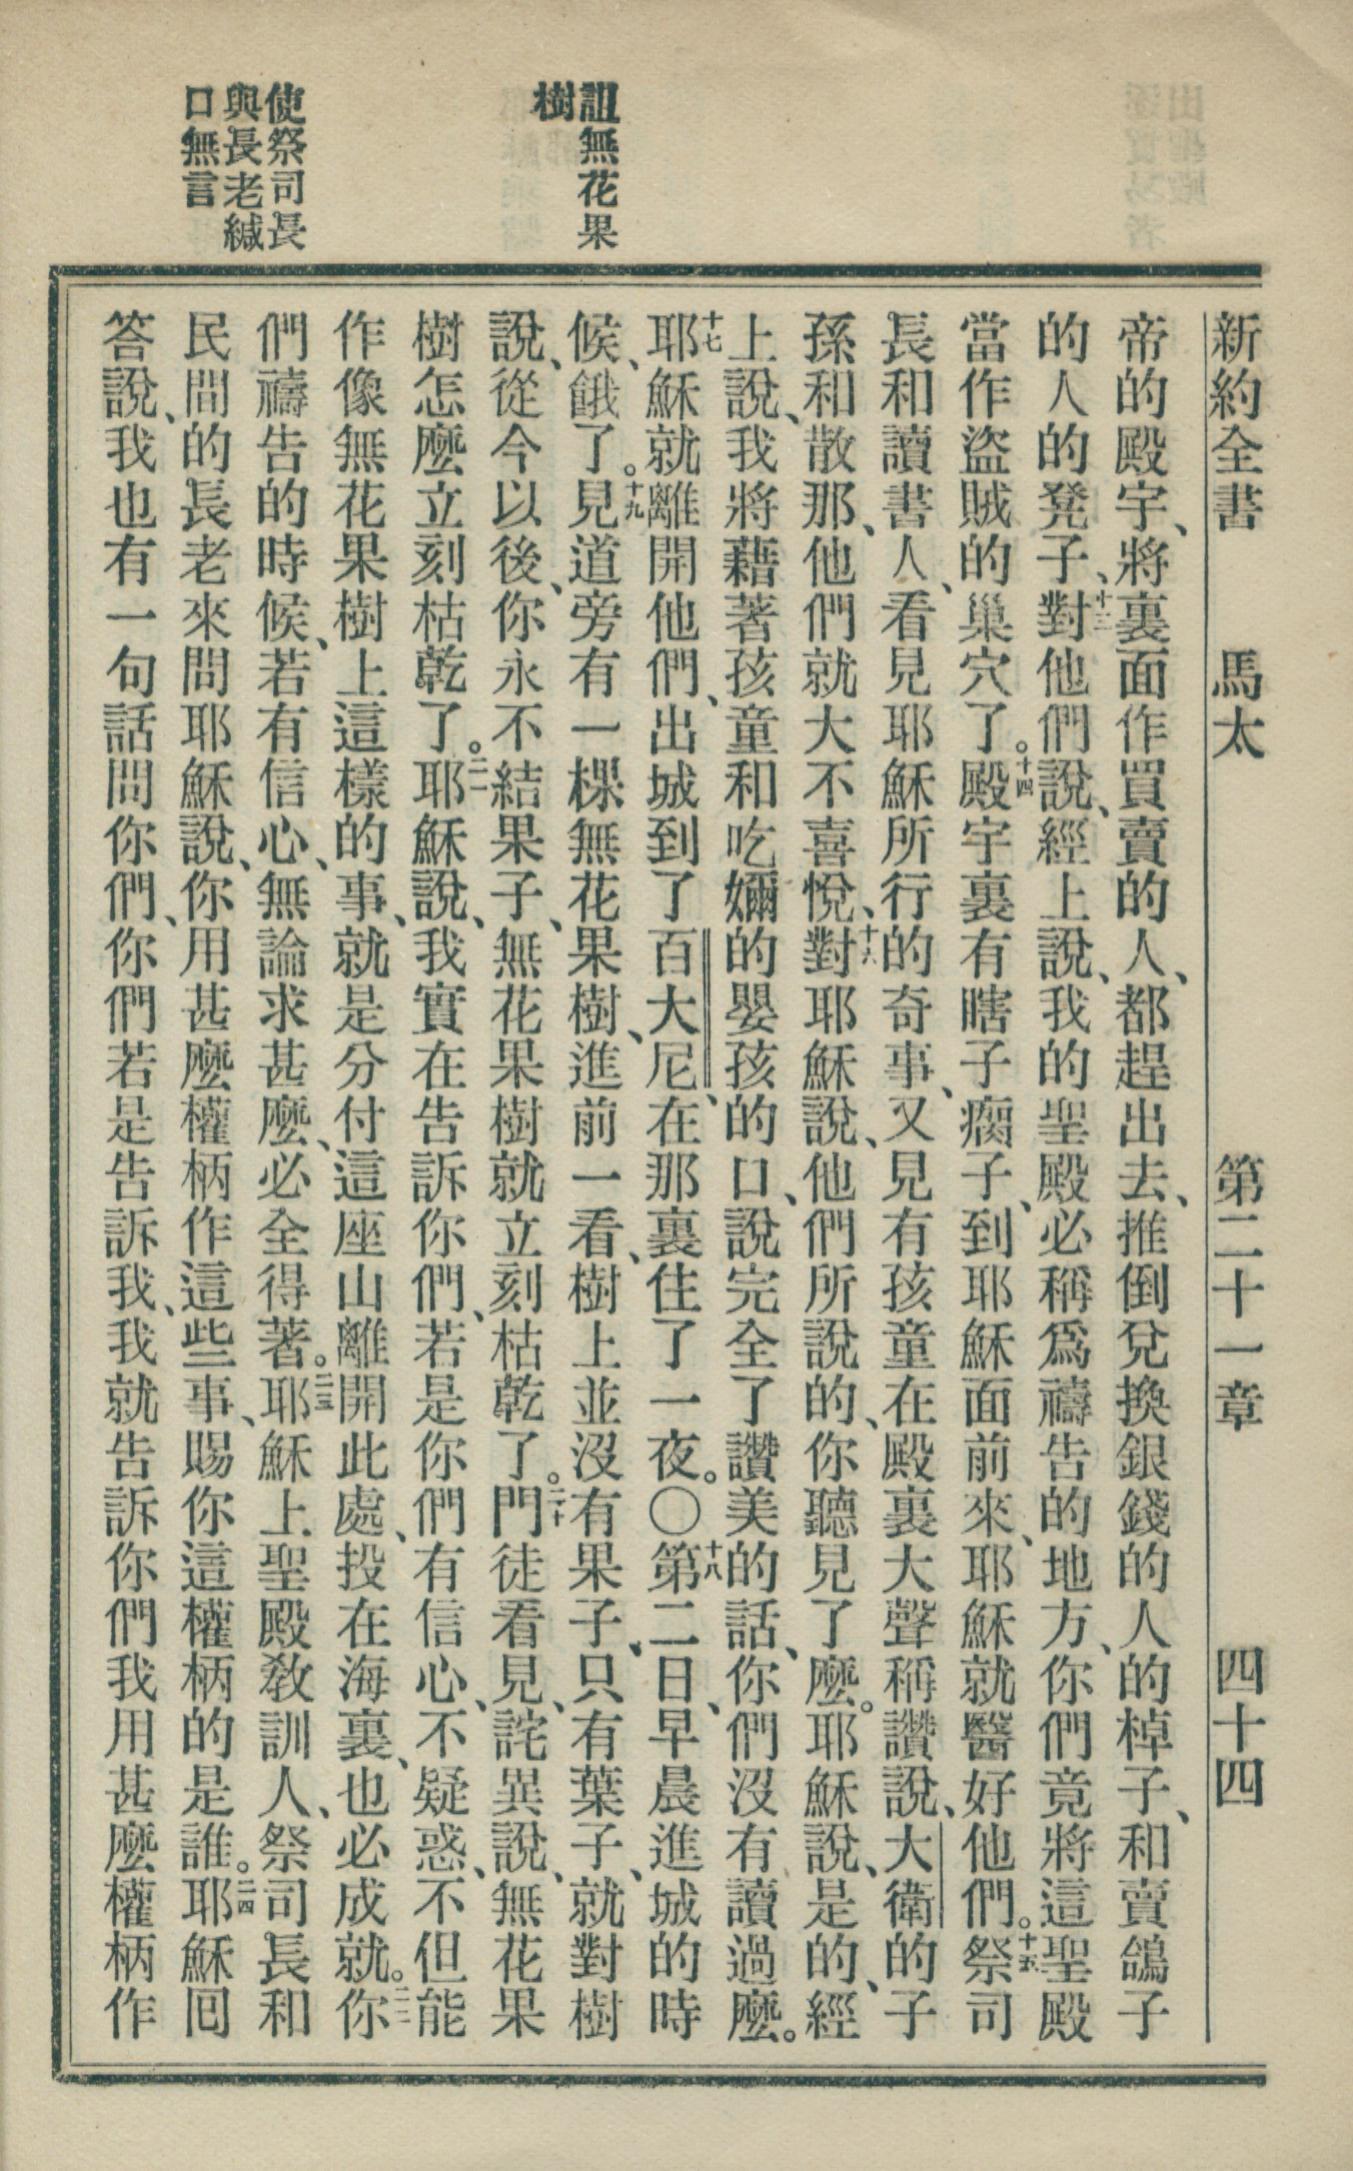 新約全書 馬太 第二十一章 四十四
帝的殿宇、將裏面作買賣的人、都趕出去、推倒兌換銀錢的人的棹子、和賣鴿子
的人的凳子、十三對他們說、經上說、我的聖殿必稱爲禱告的地方、你們竟將這聖殿
當作盜賊的巢穴了。十四殿宇裏有瞎子瘸子、到耶穌面前來、耶穌就醫好他們。十五祭司
長和讀書人、看見耶穌所行的奇事、又見有孩童在殿裏大聲稱讚說、大衛的子
孫和散那、他們就大不喜悅、十六對耶穌說、他們所說的、你聽見了麼。耶穌說、是的、經
上說、我將藉著孩童和吃嬭的嬰孩的口、說完全了讚美的話、你們沒有讀過麼。
十七耶穌就離開他們、出城到了百大尼、在那裏住了一夜。〇十八第二日、早晨進城的時
候、餓了。十九見道旁有一棵無花果樹、進前一看、樹上並沒有果子、只有葉子、就對樹
說、從今以後、你永不結果子、無花果樹就立刻枯乾了。二十門徒看見、詫異說、無花果
樹怎麼立刻枯乾了。二一耶穌說、我實在告訴你們、若是你們有信心、不疑惑、不但能
作像無花果樹上這樣的事、就是分付這座山離開此處、投在海裏、也必成就。二二你
們禱告的時候、若有信心、無論求甚麼、必全得著。二三耶穌上聖殿敎訓人、祭司長和
民間的長老來問耶穌說、你用甚麼權柄作這些事、賜你這權柄的是誰。二四耶穌囘
答說、我也有一句話問你們、你們若是告訴我、我就告訴你們我用甚麼權柄作
詛無花果
樹
使祭司長
與長老緘
口無言